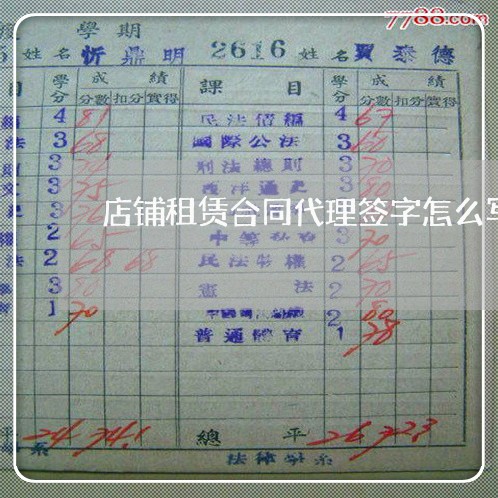 7788.com
學期
5 姓名 忻鼎明 2616 姓名 賈泰德
目 學分 成績 課目 學分 成績
分數 扣分 實得 分數 扣分 實得
4 81 民法債編 4 67
法 3 68 國際公法 3 60
3 刑法總則 3 70
3 75 西洋通史 3 80
店铺租赁合同代理签字怎么写
2 65 3 70
法 2 68 68 民法物權 2 65
3 80 憲法 2 70
1 70 2 80
普通體育 1 78
平 24 74.1 總平 26 72.3
系 法律學系